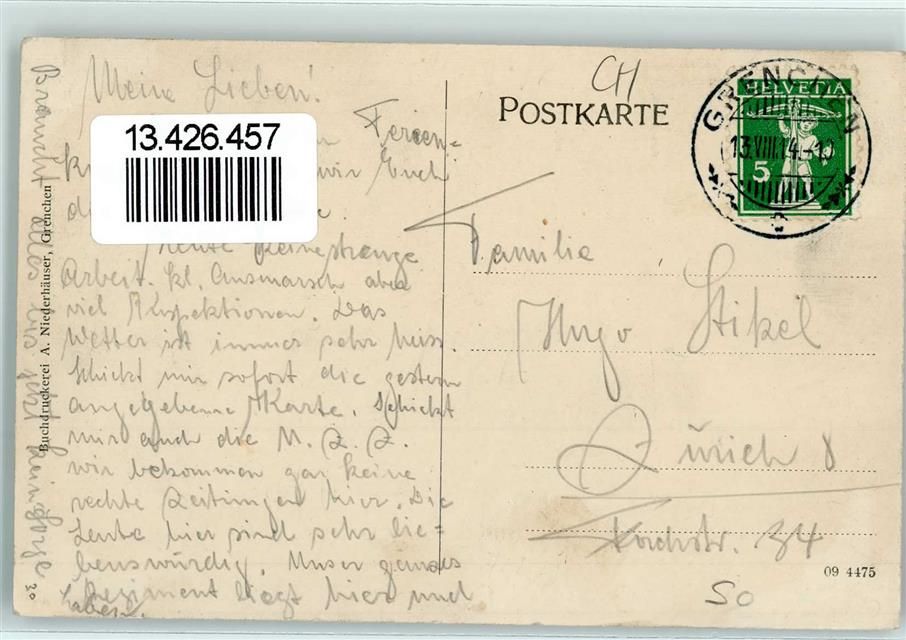 Meine Lieben!
Ferien-
wir Euch
heute keine strenge
Arbeit. kl. Ausmarsch aber
viel Inspektionen. Das
Wetter ist immer sehr heiss.
Schickt mir sofort die gestern
angegebene Karte. Schickt
mir auch die N. Z. Z.
wir bekommen gar keine
rechte Zeitungen hier. Die
Leute hier sind sehr lie-
benswürdig. Unser ganzes
Regiment liegt hier und
Braucht
jetzt keine Sorge
haben.
13.426.457
Buchdruckerei A. Niederhäuser, Grenchen
30
CH
POSTKARTE
GRENCHEN
13.VIII.14.-1
HELVETIA
5
Familie
Hugo Stikel
Zürich 8
34
09 4475
So